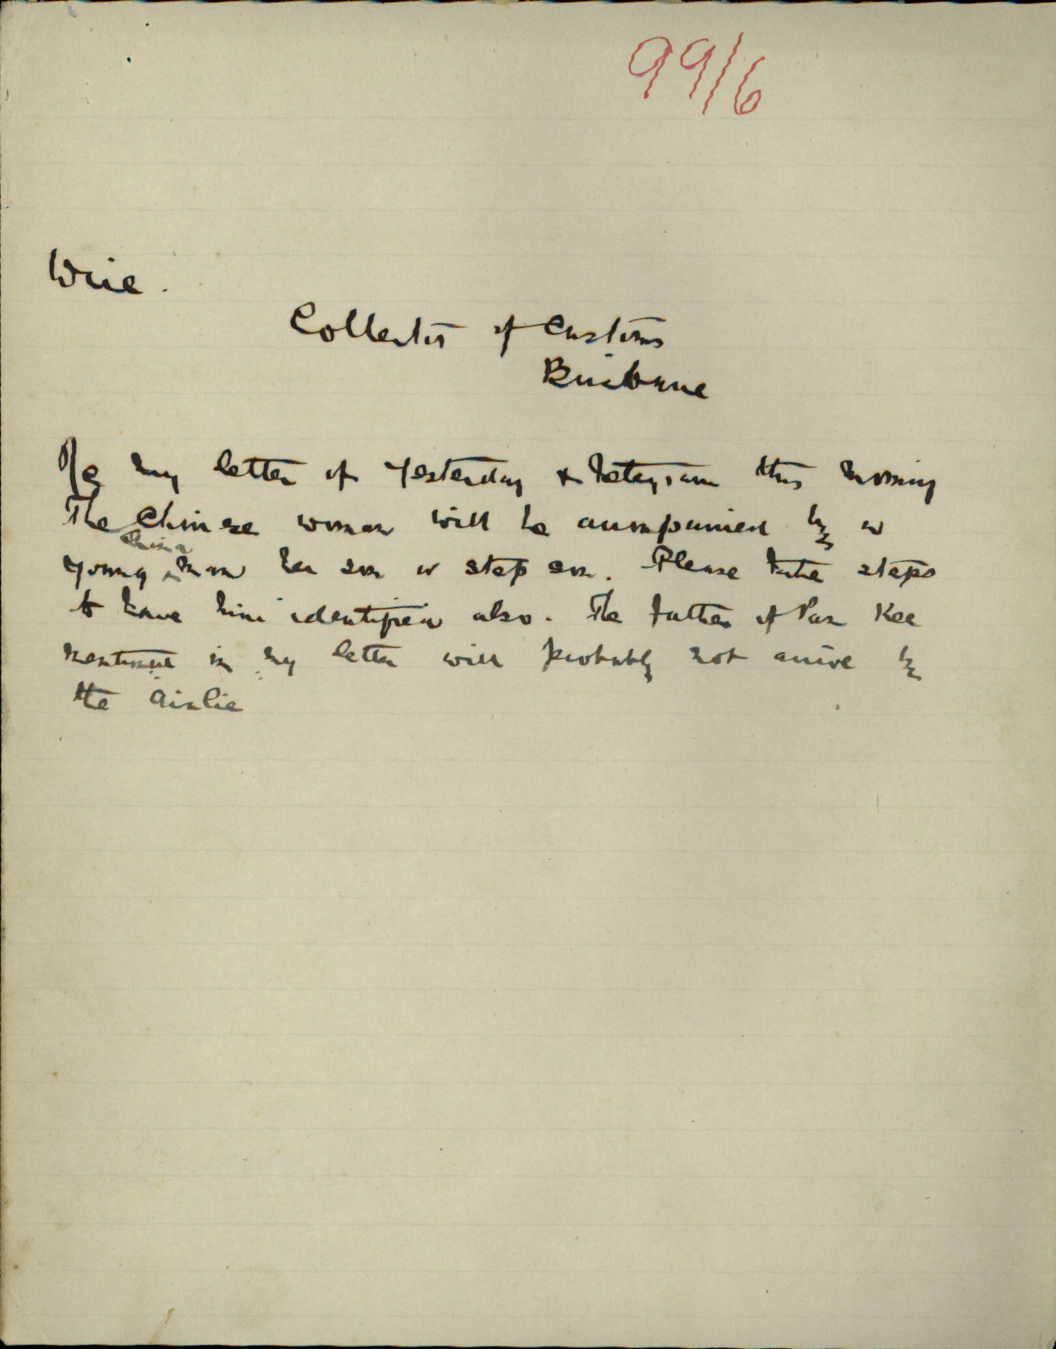 99/6
Wire.
Collector of Customs
Brisbane
Re my letter of Yesterday & telegram this morning
The Chinese woman will be accompanied by a
China
young man her son or step son. Please take steps
to have him identified also. The father of Pan Kee
mentioned in my letter will probably not arrive by
the Airlie